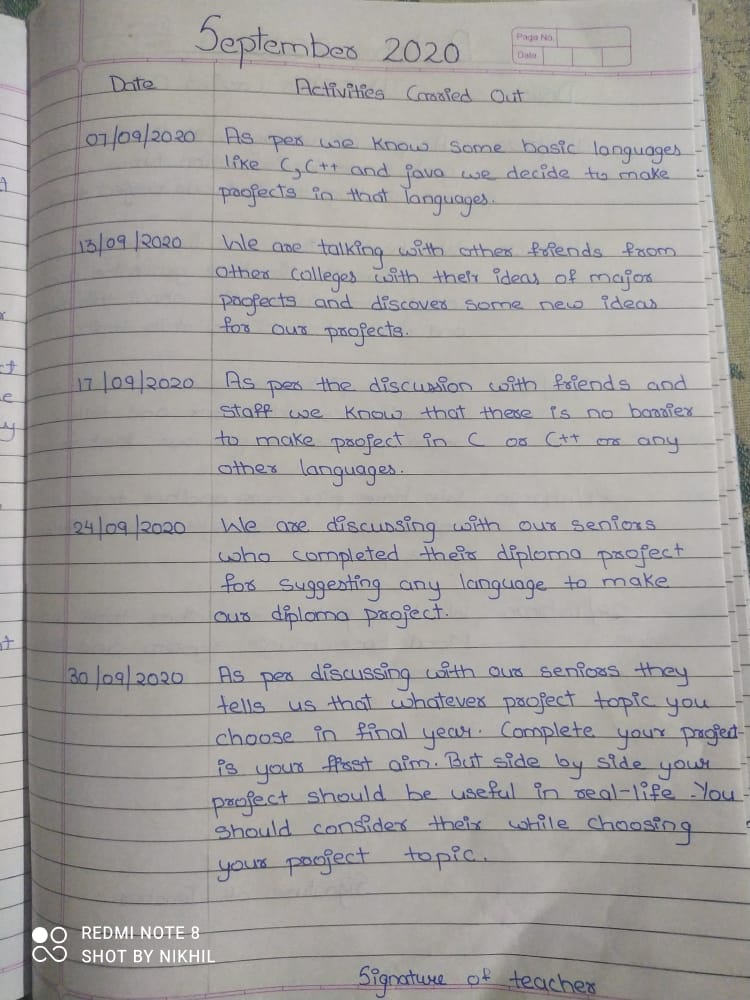 September 2020
Page No.
Date
Date Activities Carried Out
07/09/2020 As per we know some basic languages
like C, C++ and java we decide to make
projects in that languages.
13/09/2020 We are talking with other friends from
other colleges with their ideas of major
projects and discover some new ideas
for our projects.
17/09/2020 As per the discussion with friends and
staff we know that there is no barrier
to make project in C or C++ or any
other languages.
24/09/2020 We are discussing with our seniors
who completed their diploma project
for suggesting any language to make
our diploma project.
30/09/2020 As per discussing with our seniors they
tells us that whatever project topic you
choose in final year. Complete your project
is your first aim. But side by side your
project should be useful in real-life. You
should consider their while choosing
your project topic.
Signature of teacher
REDMI NOTE 8
SHOT BY NIKHIL